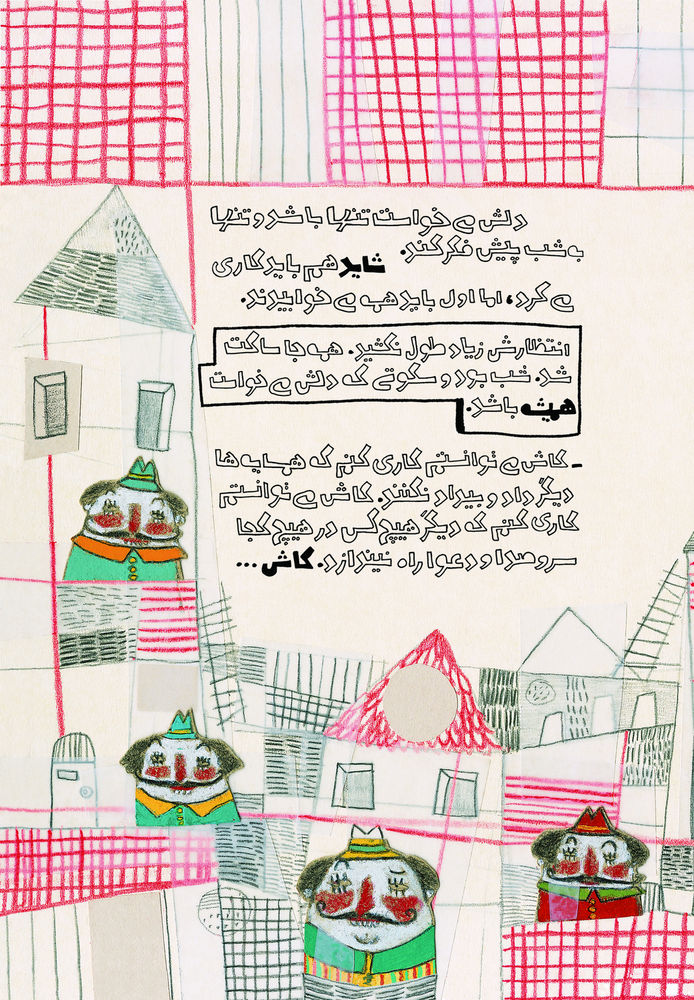 دلش می‌خواست تنها باشد و تنها
به شب پیش فکر کند. شاید هم باید کاری
می‌کرد، اما اول باید همه می‌خوابیدند.
انتظارش زیاد طول نکشید. همه جا ساکت
شد. شب بود و سکوتی که دلش می‌خواست
همیشه باشد.
- کاش می‌توانستم کاری کنم که همسایه‌ها
دیگر داد و بیداد نکنند. کاش می‌توانستم
کاری کنم که دیگر هیچ‌کس در هیچ کجا
سر و صدا و دعوا راه نیندازد. کاش ...